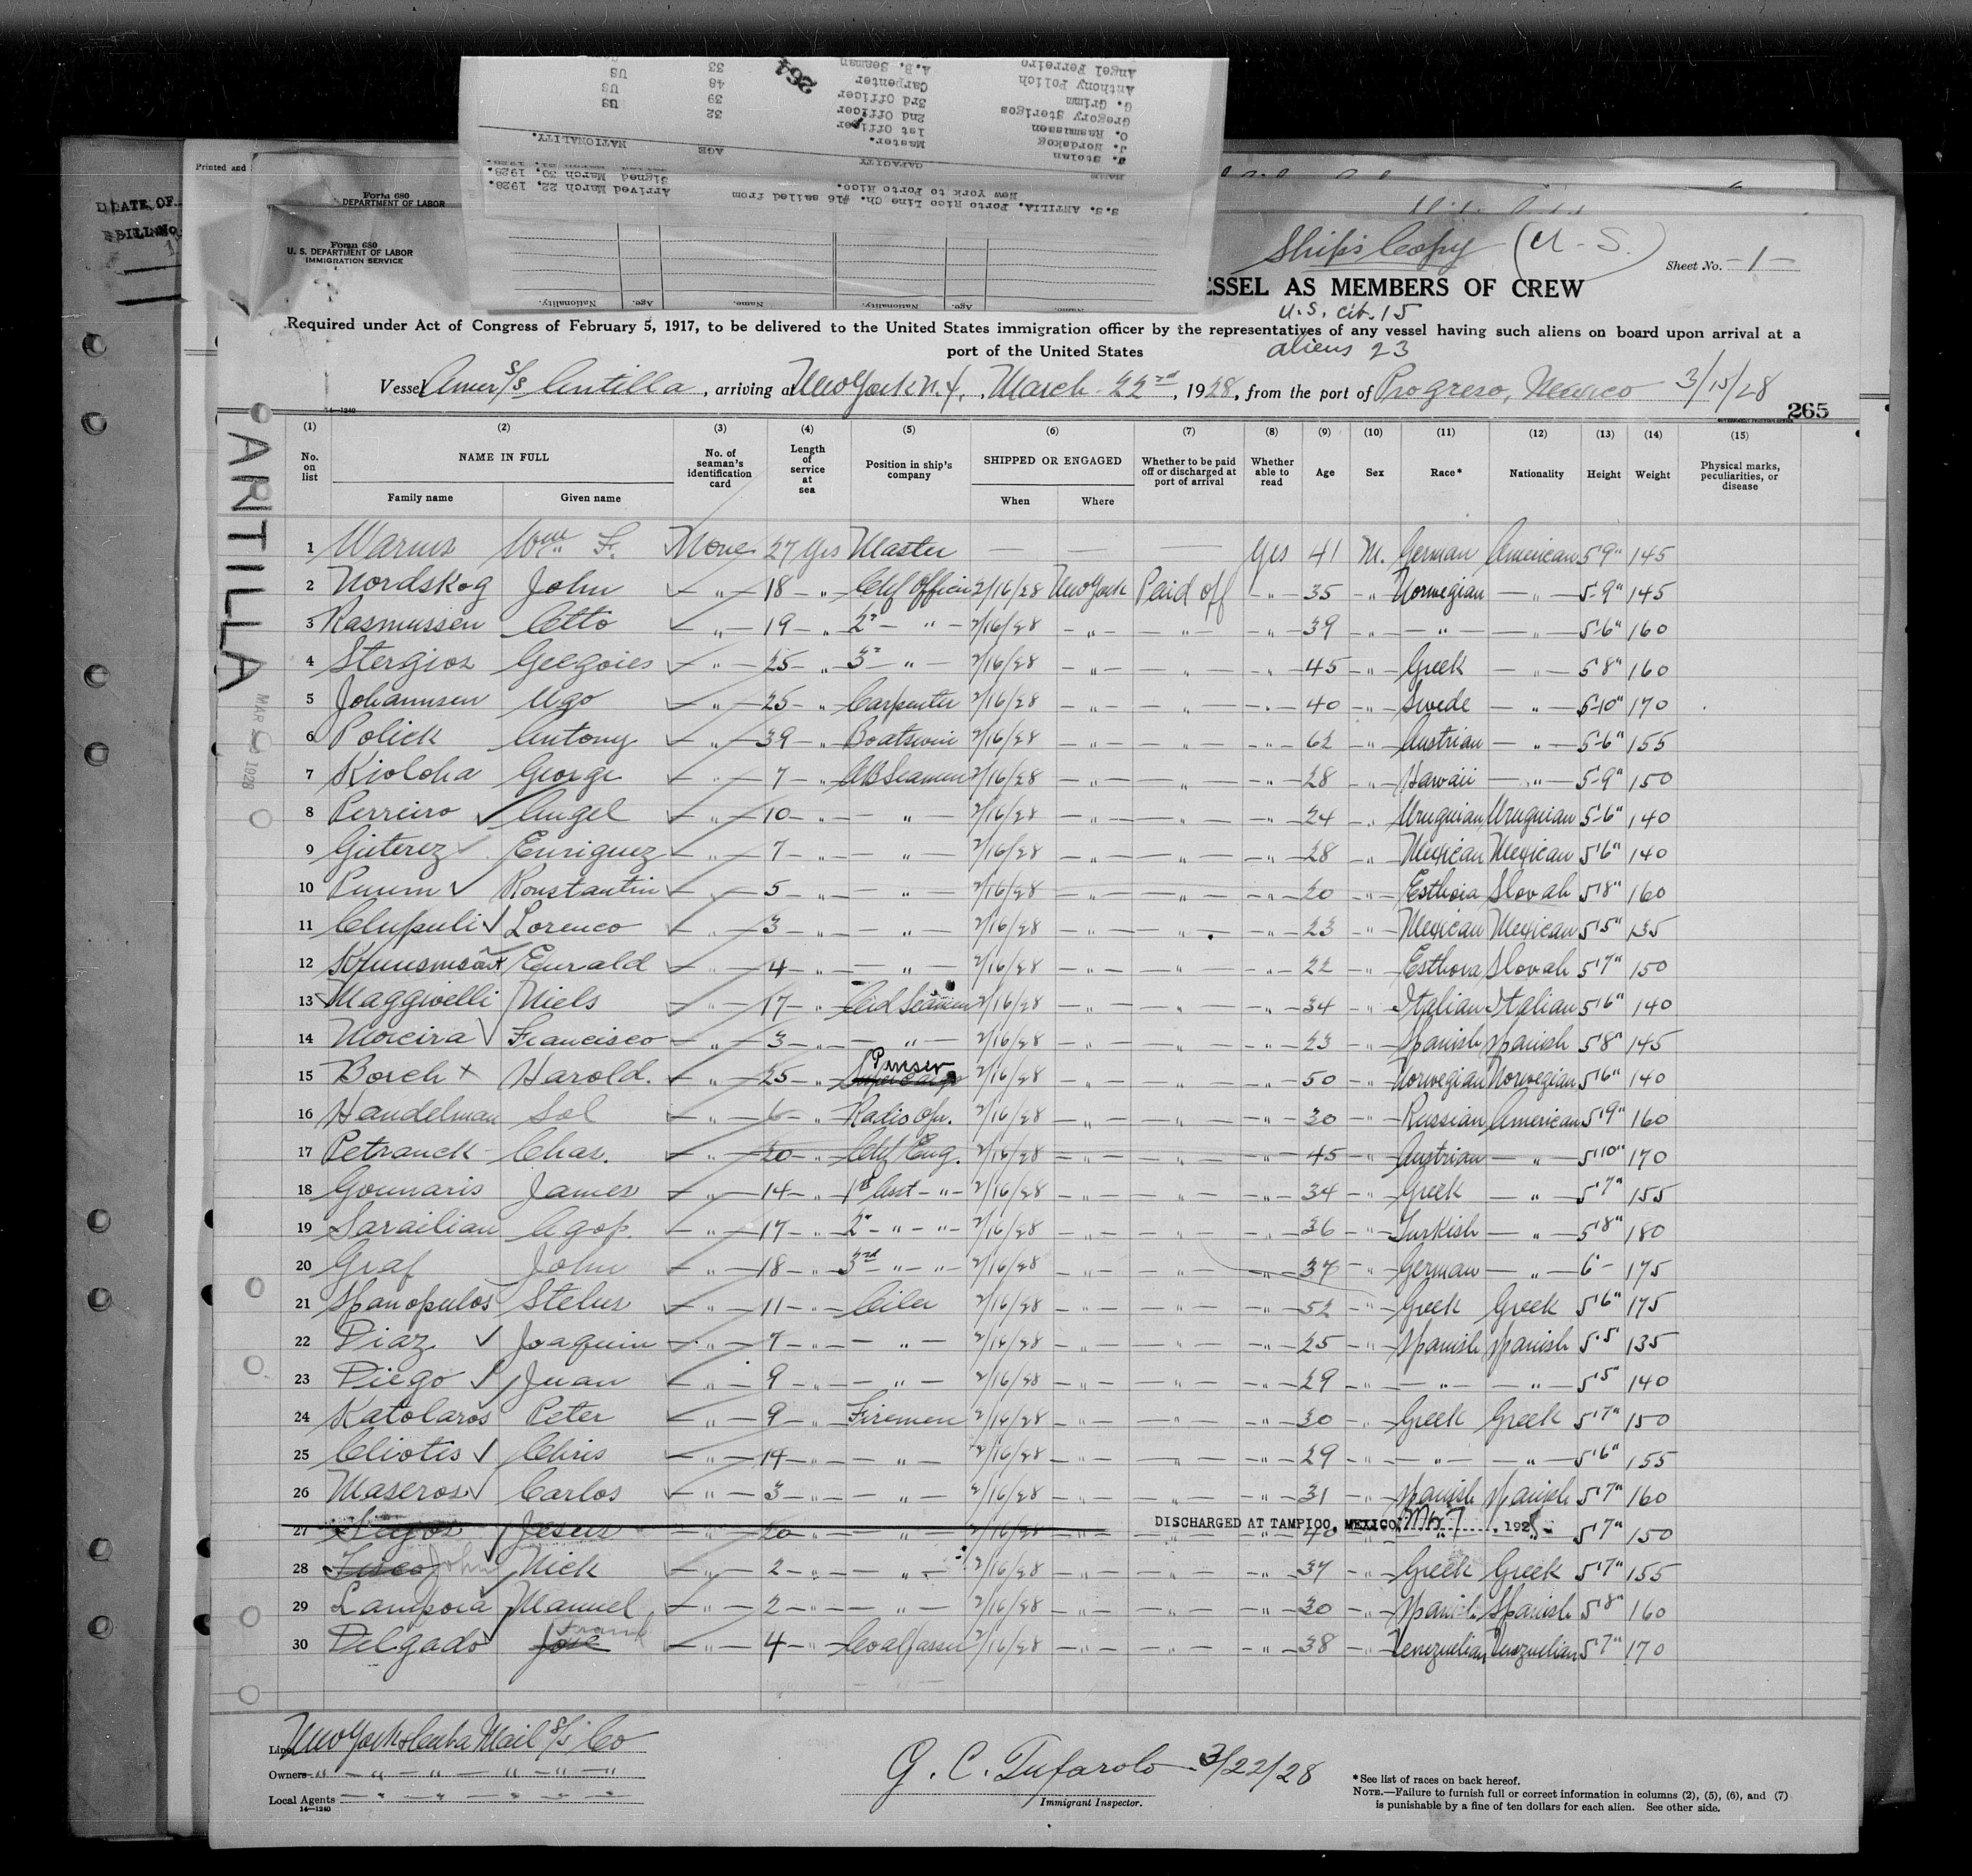 Ship's Copy (U.S.)
Sheet No. -1-
Printed and
Form 680
DEPARTMENT OF LABOR
DATE OF
Form 680
U. S. DEPARTMENT OF LABOR
IMMIGRATION SERVICE
S.S. ANTILIA. Porto Rico Line Ch. #16 sailed from
New York to Porto Rico.
Arrived March 22. 1928.
Signed March 30. 1928.
NAME CAPACITY AGE NATIONALITY.
Master
J. Nordskog 1st Officer
O. Rasmussen 2nd Officer 32
Gregory Sterigos 3rd Officer 39 US
G. Grimm Carpenter 48 US
Anthony Polich A.B. Seaman 33 US
Angel Ferreiro
264
Name. Age. Nationality. Name. Age. Nationality.
ESSEL AS MEMBERS OF CREW
U.S. cit. 15
Required under Act of Congress of February 5, 1917, to be delivered to the United States immigration officer by the representatives of any vessel having such aliens on board upon arrival at a
port of the United States
aliens 23
Vessel Amer S/S Antilla, arriving at New York N.Y., March 22nd, 1928, from the port of Progreso, Mexico 3/15/28
14—1240
265
ANTILLA
(1) (2) (3) (4) (5) (6) (7) (8) (9) (10) (11) (12) (13) (14) (15)
No. on list
NAME IN FULL
Family name Given name
No. of seaman's identification card
Length of service at sea
Position in ship's company
SHIPPED OR ENGAGED
When Where
Whether to be paid off or discharged at port of arrival
Whether able to read
Age Sex Race* Nationality Height Weight
Physical marks, peculiarities, or disease
1 Warms Wm. F. None 27 yrs Master — — — yes 41 M. German American 5'9" 145
2 Nordskog John " 18 " Chf Officer 2/16/28 New York Paid off " 35 " Norwegian " 5'9" 145
3 Rasmussen Otto " 19 " 2" " 2/16/28 " " " 39 " " " 5'6" 160
4 Stergios " 25 " 3" " 2/16/28 " " " 45 " Greek " 5'8" 160
5 Johannsen Ugo " 25 " Carpenter 2/16/28 " " " 40 " Swede " 5'10" 170
6 Polick Antony " 39 " Boatswin 2/16/28 " " " 62 " Austrian " 5'6" 155
7 Kioloha George " 7 " AB Seamen 2/16/28 " " " 28 " Hawaii " 5'9" 150
8 Perreiro Angel " 10 " " 2/16/28 " " " 24 " Uruguian Uruguian 5'6" 140
9 Guterez Enriguez " 7 " " 2/16/28 " " " 28 " Mexican Mexican 5'6" 140
10 Konstantin " 5 " " 2/16/28 " " " 20 " Esthoia Slovak 5'8" 160
11 Chupuli Lorenco " 3 " " 2/16/28 " " " 23 " Mexican Mexican 5'5" 135
12 " 4 " " 2/16/28 " " " 22 " Esthova Slovak 5'7" 150
13 Maggivelli Niels " 17 " Seamen 2/16/28 " " " 34 " Italian Italian 5'6" 140
14 Moreira Francisco " 3 " " 2/16/28 " " " 23 " Spanish Spanish 5'8" 145
15 Borch x Harold. " 25 " Purser 2/16/28 " " " 50 " Norwegian Norwegian 5'6" 140
16 Handelman Sol " 6 " Radio Opr. 2/16/28 " " " 30 " Russian American 5'9" 160
17 Petranck Chas. " 20 " Chf Eng. 2/16/28 " " " 45 " Austrian " 5'10" 170
18 Gounaris James " 14 " 1st Asst " 2/16/28 " " " 34 " Greek " 5'7" 155
19 Sarailian Agop. " 17 " 2" " " 2/16/28 " " " 36 " Turkish " 5'8" 180
20 Graf John " 18 " 3rd " " 2/16/28 " " " 37 " German " 6' 175
21 Spanopulos Stelus " 11 " Oiler 2/16/28 " " " 52 " Greek Greek 5'6" 175
22 Diaz Joaquin " 7 " " 2/16/28 " " " 25 " Spanish Spanish 5'5" 135
23 Diego Juan " 9 " " 2/16/28 " " " 29 " " " 5'5" 140
24 Katolaros Peter " 9 " Firemen 2/16/28 " " " 30 " Greek Greek 5'7" 150
25 Cliotis Chris " 14 " " 2/16/28 " " " 29 " " " 5'6" 155
26 Maseros Carlos " 3 " " 2/16/28 " " " 31 " Spanish Spanish 5'7" 160
27 Jesus " 20 " " 2/16/28 DISCHARGED AT TAMPICO, MEXICO, Mar 7 1928 40 5'7" 150
28 John Nick " 2 " " 2/16/28 " " " 37 " Greek Greek 5'7" 155
29 Lampoia Manuel " 2 " " 2/16/28 " " " 30 " Spanish Spanish 5'8" 160
30 Delgado Jose Frank " 4 " Coal Passer 2/16/28 " " " 38 " Venezuelian Venezuelian 5'7" 170
Line New York & Cuba Mail S/S Co
Owners " " " " " "
Local Agents " " " " " "
14—1240
G. C. Tufarolo 3/22/28
Immigrant Inspector.
*See list of races on back hereof.
NOTE.—Failure to furnish full or correct information in columns (2), (5), (6), and (7)
is punishable by a fine of ten dollars for each alien. See other side.